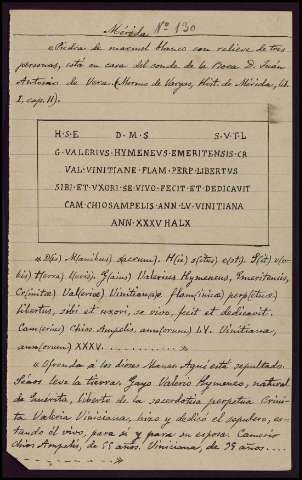 Mérida Nº 130
«Piedra de marmol blanco con relieve de tres
personas, está en casa del conde de la Roca D. Juán
Antonio de Vera. (Moreno de Vargas, Hist. de Mérida, lib.
I, cap. 11).
H·S·E D·M·S S·V·T·L
G·VALERIUS·HYMENEVS·EMERITENSIS·CR
VAL·VINITIANE·FLAM·PERP·LIBERTVS
SIBI·ET·VXORI·SE·VIVO·FECIT·ET·DEDICAVIT
CAM·CHIOSAMPELIS·ANN·LV·VINITIANA
ANN·XXXV HALX
«D(is) M(anibus) sacrum). H(ic) s(itus) e(st). S(it) v(o-
bis) t(erra) l(evis). G(aius) Valerius Hymeneus, Emeritensis,
Cr(initæ) Val(eriæ) Vinitian(a)e, flam(inicæ) perp(etuæ)
libertus, sibi et uxori, se vivo, fecit et dedicavit.
Cam(erius) Chios Ampelis, ann(orum) LV. Vinitiana,
ann(orum) XXXV. ........... »
«Ofrenda á los dioses Manes. Aqui está sepultado.
Séaos leve la tierra. Gayo Valerio Hymeneo, natural
de Emerita, liberto de la sacerdotisa perpetua Crini-
ta Valeria Viniciana, hizo y dedicó el sepulcro, es-
tando él vivo, para sí y para su esposa. Camerio
Chios Ampelis, de 55 años. Viniciana, de 35 años....
........... »